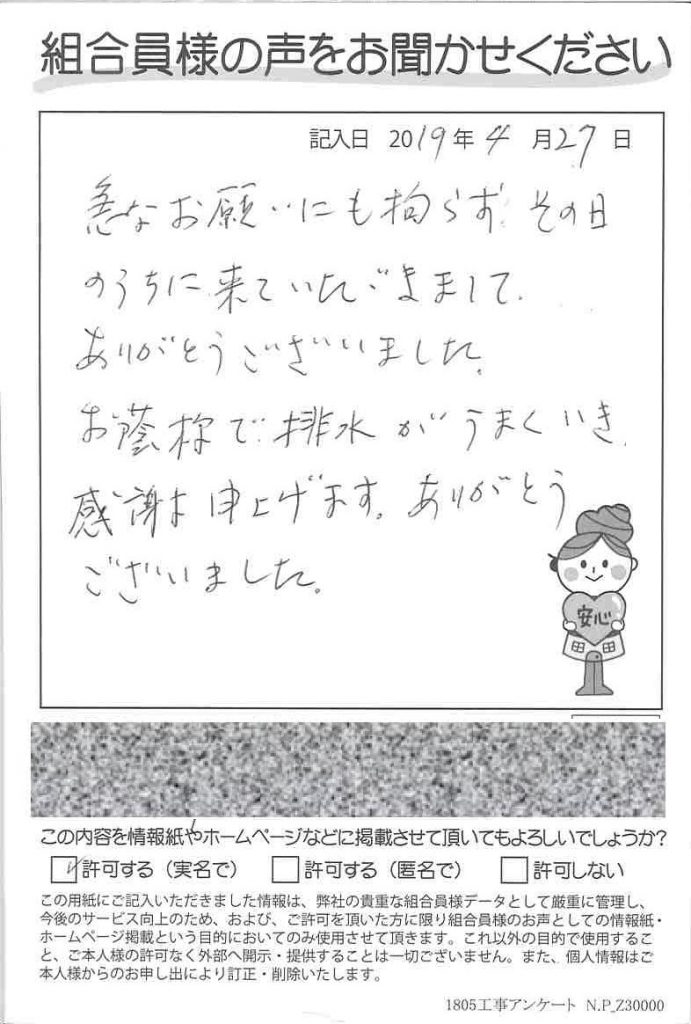 組合員様の声をお聞かせください
記入日 2019年4月27日
急なお願いにも拘らず、その日
のうちに来ていただきまして、
ありがとうございました。
お蔭様で排水がうまくいき、
感謝申上げます。ありがとう
ございました。
安心
この内容を情報紙やホームページなどに掲載させて頂いてもよろしいでしょうか?
許可する（実名で） 許可する（匿名で） 許可しない
この用紙にご記入いただきました情報は、弊社の貴重な組合員様データとして厳重に管理し、
今後のサービス向上のため、および、ご許可を頂いた方に限り組合員様のお声としての情報紙・
ホームページ掲載という目的においてのみ使用させて頂きます。これ以外の目的で使用するこ
と、ご本人様の許可なく外部へ開示・提供することは一切ございません。また、個人情報はご
本人様からのお申し出により訂正・削除いたします。
1805工事アンケート N.P_Z30000